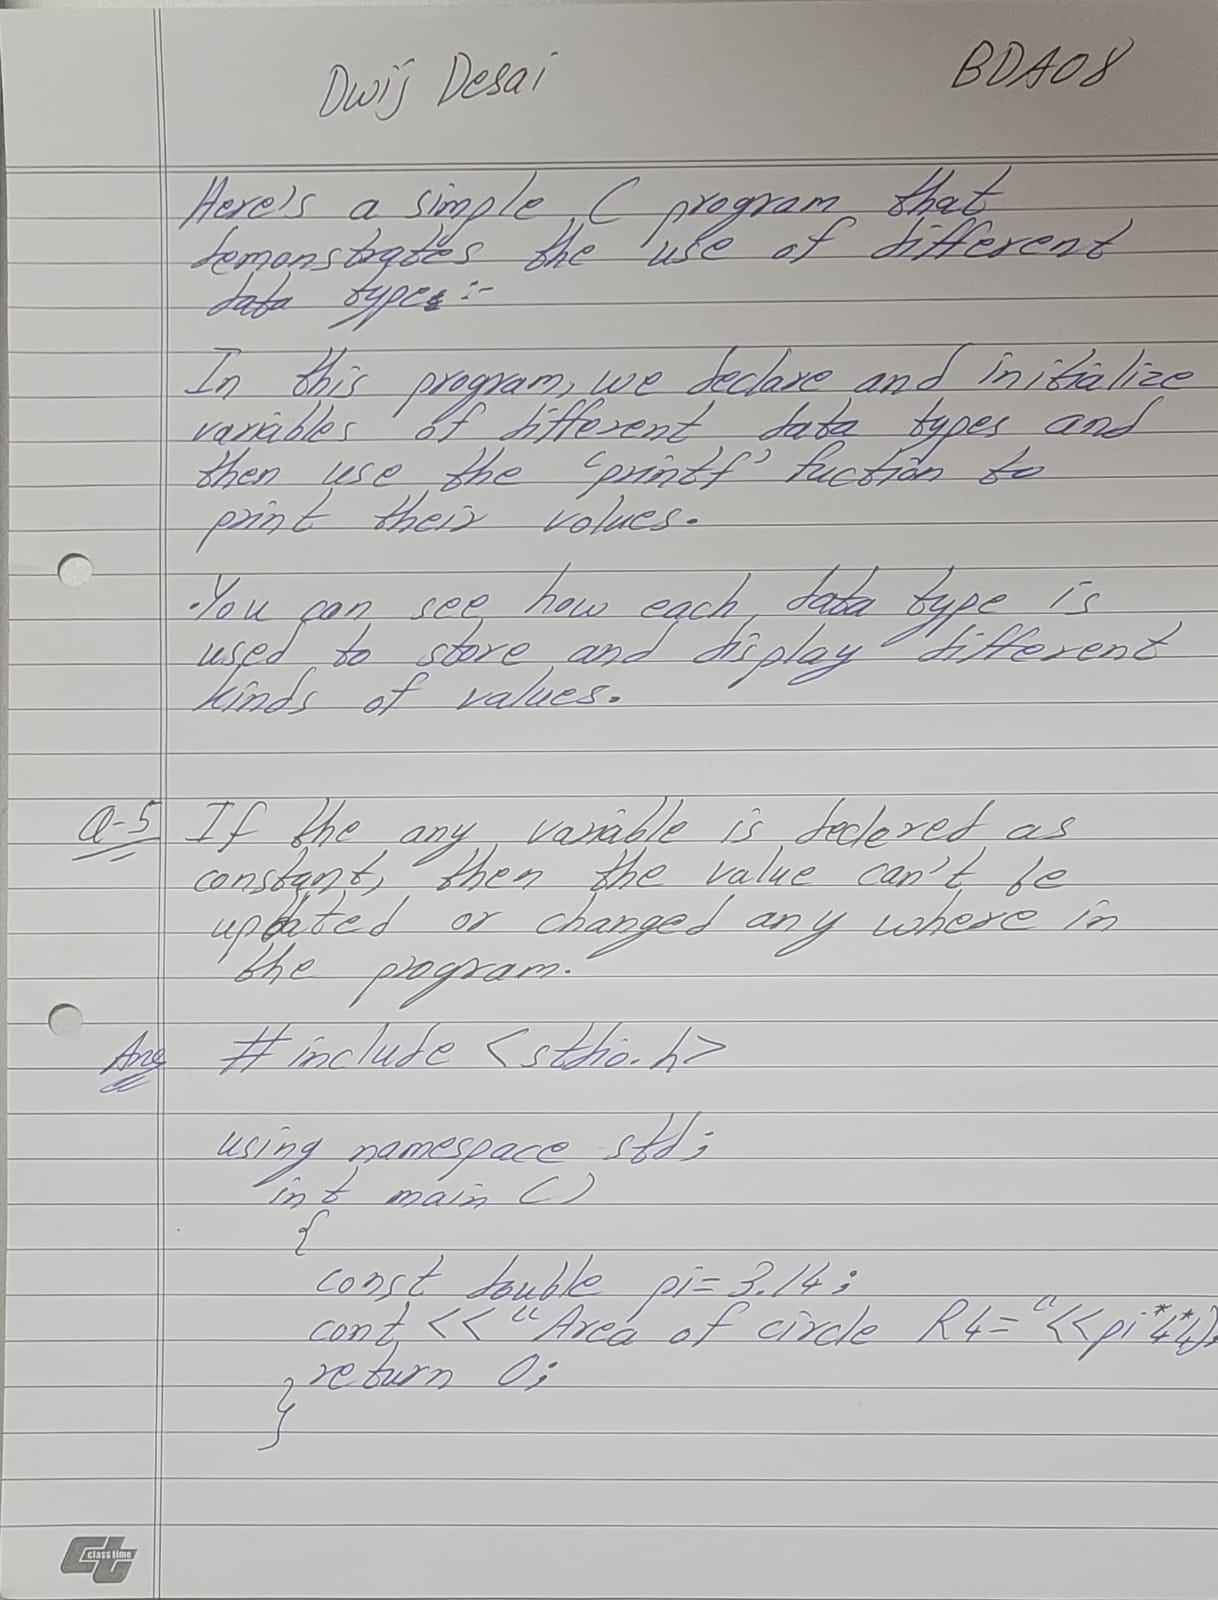 Dwij Desai BDA08
Here's a simple C program that
demonstrates the use of different
data types :-
In this program, we declare and initialize
variables of different data types and
then use the 'printf' fuction to
print their values.
•You can see how each data type is
used to store and display different
kinds of values.
Q-5 If the any variable is declared as
constant, then the value can't be
updated or changed any where in
the program.
Ans # include <stdio.h>
using namespace std;
int main ()
{
const double pi= 3.14;
cont << "Area of circle R4= "<<pi*4*4);
return 0;
}
ct class time